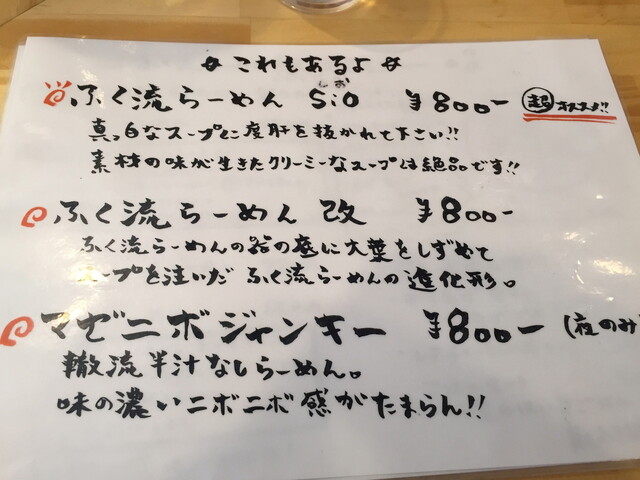 これもあるよ
ふく流らーめん Sio しお ¥800- 超オススメ!!
真っ白なスープに度肝を抜かれて下さい!!
素材の味が生きたクリーミーなスープは絶品です!!
ふく流らーめん 改 ¥800-
ふく流らーめんの器の底に大葉をしずめて
スープを注いだ ふく流らーめんの進化形。
マゼニボジャンキー ¥800- (夜のみ
轍流半汁なしらーめん。
味の濃いニボニボ感がたまらん!!